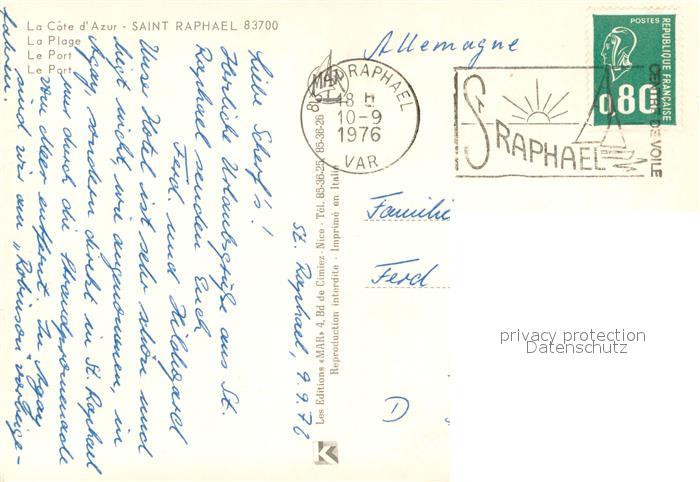 La Côte d'Azur - SAINT RAPHAEL 83700
La Plage
Le Port
Le Port
St. Raphael, 9.9.76
Liebe Scherf's!
Herzliche Urlaubsgrüße aus St.
Raphael senden Euch
Ferd und Hildegard
Unser Hotel ist sehr schön und
liegt nicht wie angenommen, in
Agay, sondern direkt in St. Raphael
nur durch die Strandpromenade
vom Meer entfernt. In Agay
sind wir am „Robinson" vorbeige-
fahren.
Les Editions «MAR» 4, Bd de Cimiez - Nice - Tél. 85-36-25 85-36-26
Reproduction interdite - Imprimé en Italie
MAR
K
RAPHAEL
18 H
10-9
1976
VAR
ST RAPHAEL
CENTRE DE VOILE
POSTES
0,80
REPUBLIQUE FRANÇAISE
Allemagne
Familie
Ferd
D
privacy protection
Datenschutz